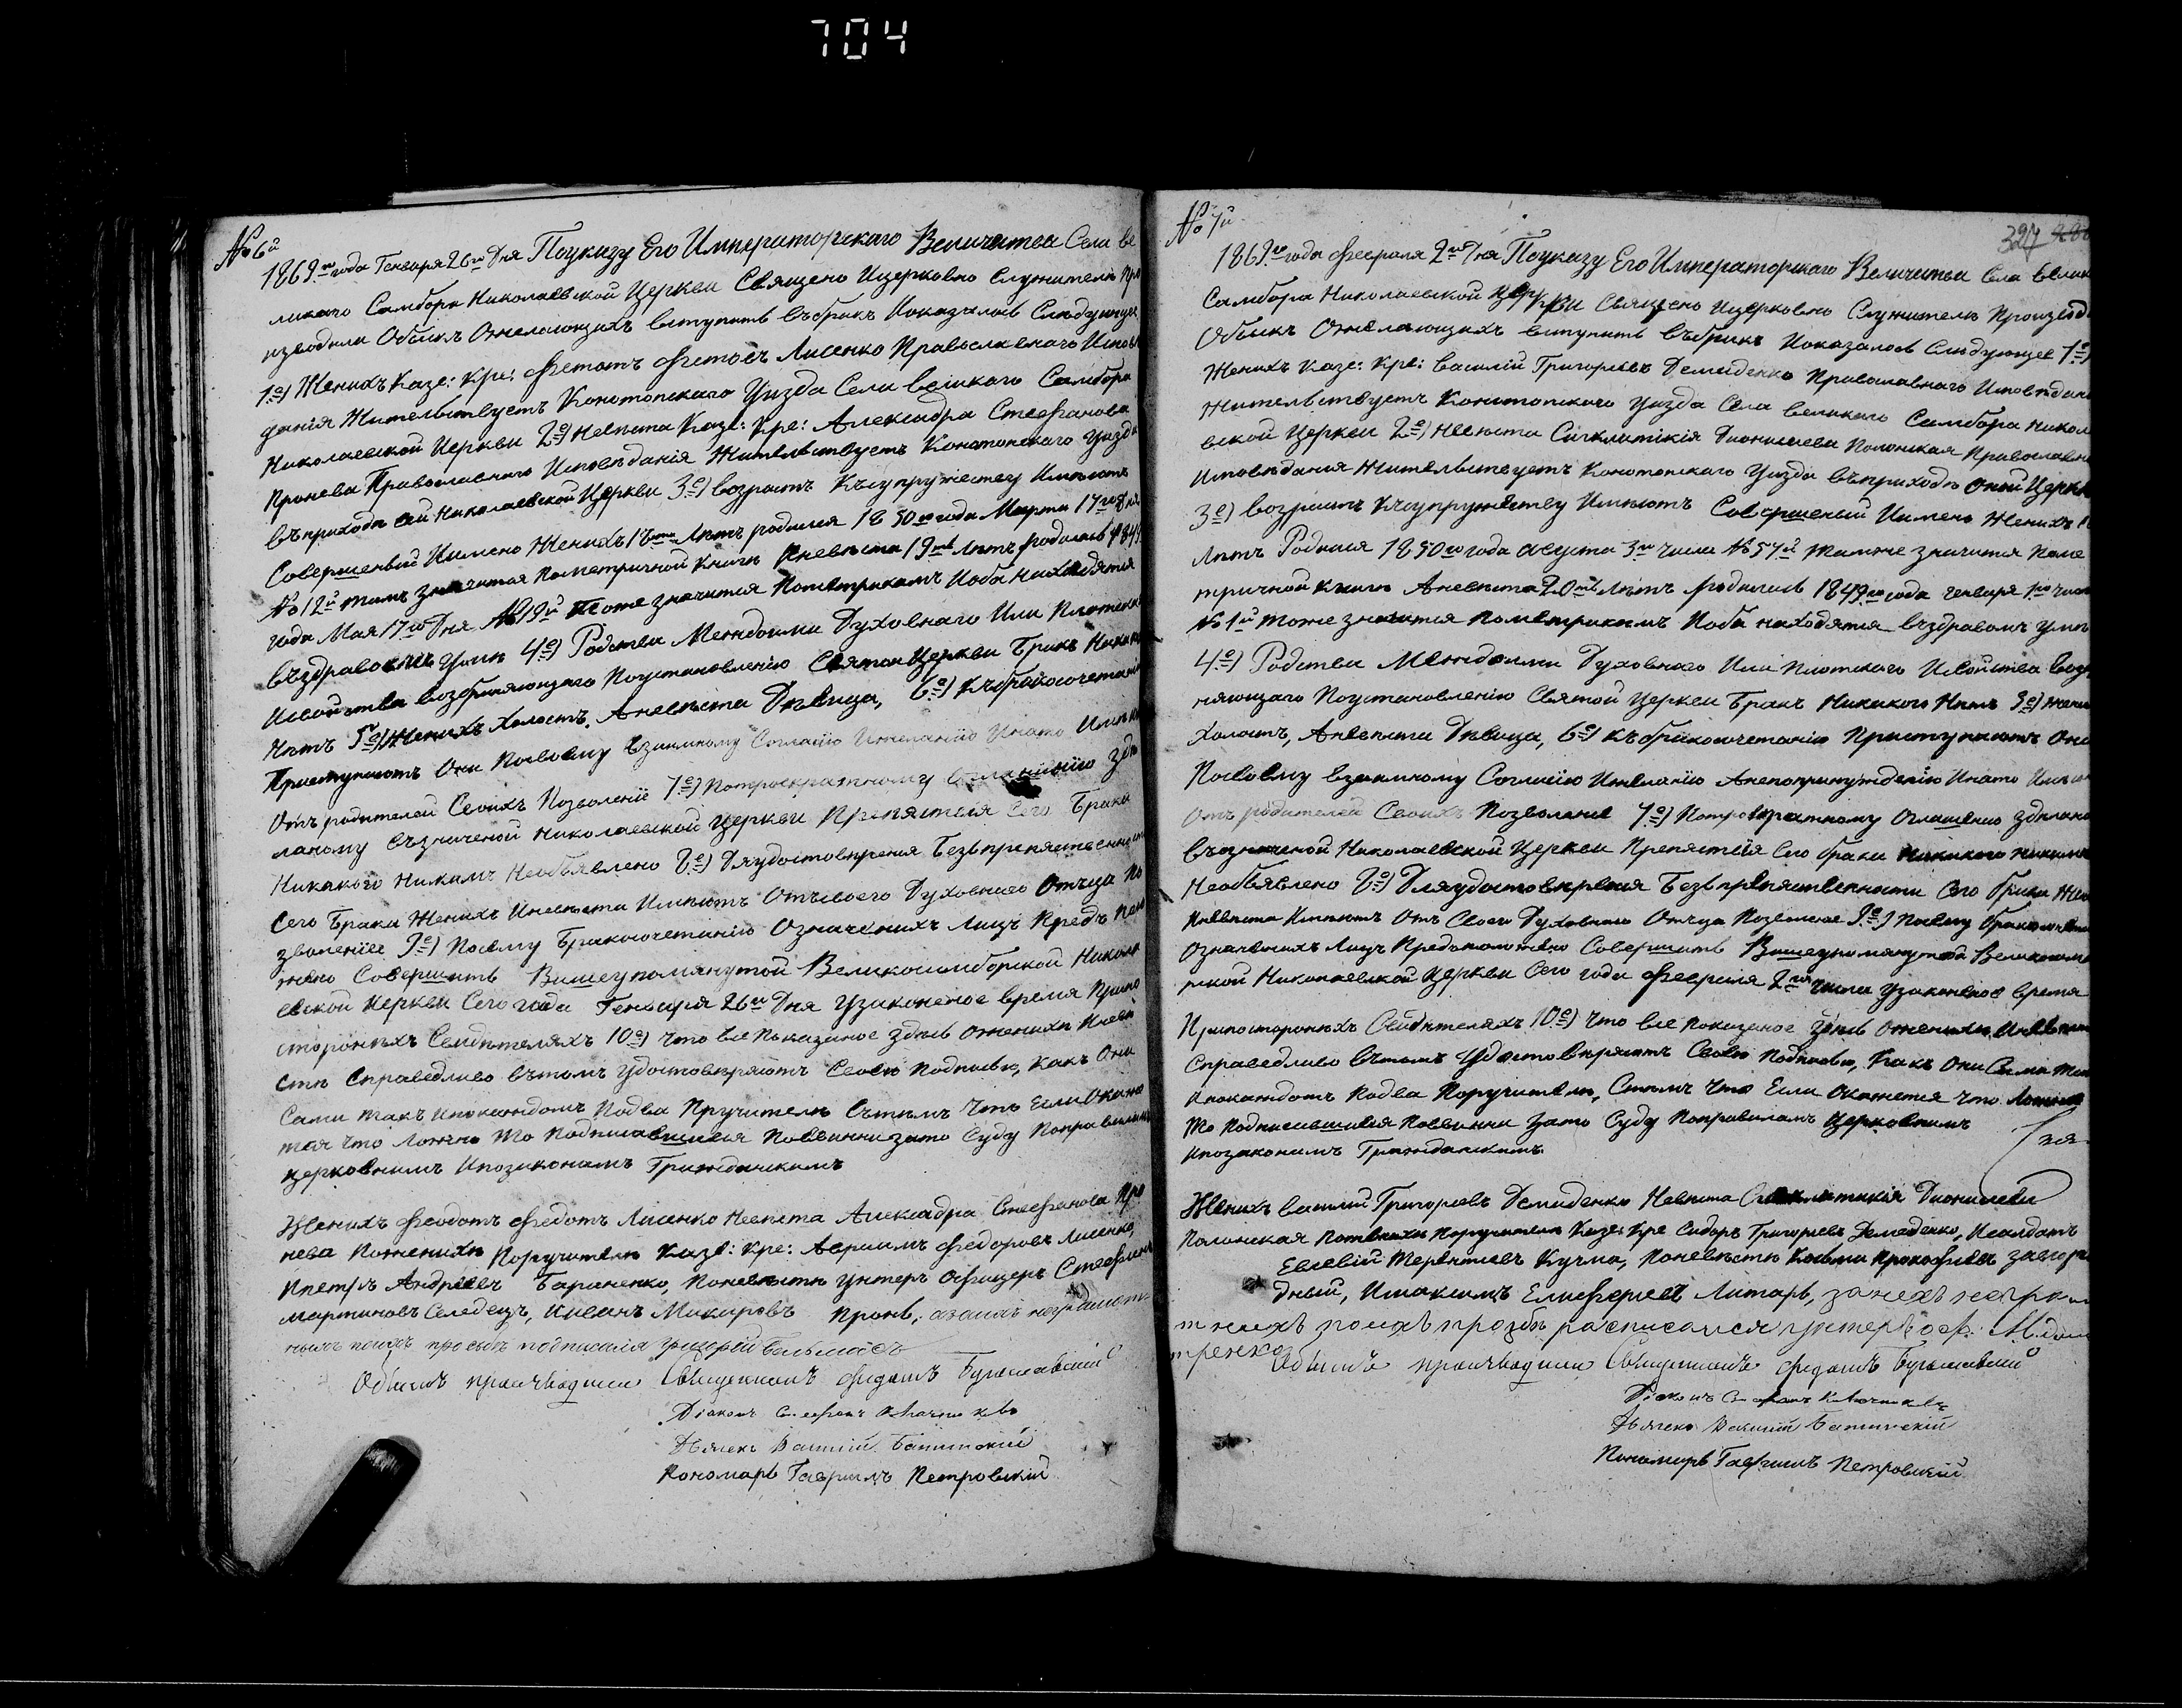 704
№ 6й
1869го года Генваря 26го Дня Поуказу Его Императорскаго Величитва Села ве
ликаго Самбора Николаевской Церкви Священо Ицерковно Служители Про
изводили Обыскъ Ожелающихъ вступить въбракъ Ипоказалось Слѣдующее
1е) Женихъ Казе: Кре: Федотъ Лисенко Православнаго Исповѣ
данія Жительствуетъ Конотопскаго Уизда Села Великаго Самбора
Николаевской Церкви 2е) Невѣста Казе: Кре: Александра Стефанова
Пронева Православнаго Исповѣданія Жительствуетъ Конотопскаго Уизда
въприходѣ сей Николаевской Церкви 3е) возрастъ Къ супружеству Имѣютъ
Совершеный Имено Женихъ 18ть Лѣтъ родился 1850го года Марта 17го дня
№ 12й значится Пометричной Книги Аневѣста 19ть Лѣтъ родилась 1849
года Мая 17го Дня № 19й Тоже значится Пометрикамъ Иоба Находятся
Въздравомъ Умѣ 4е) Родства Междоими Духовнаго Или Плотскаго
Исвойства возбраняющаго Поустановленію Святой Церкви Бракъ Никакого
Нѣтъ 5е) Женихъ Холостъ, Аневѣста Дѣвица, 6е) Къбракосочетанію
Приступаютъ Они Посвоему Взаимному Согласію Ижеланію Инато Имѣютъ
Отъ родителей Своихъ Позволеніе 7е) Потроекратному Оглашенію здѣ
ланому Въозначеной Николаевской Церкви Препятствія Сего Брака
Никакого Никимъ Необъявлено 8е) Дляудостовѣренія Безъпрепятственности
Сего Брака Женихъ Иневѣста Имѣютъ Отъсвоего Духовнаго Отъца По
зволеніее 9е) Посему Бракосочетанію Означеныхъ Лицъ Предъполо
жено Совершить Вишеупомянутой Великосамборской Никола
евской Церкви Сего года Генваря 26го Дня Узаконеное время Припо
сторонихъ Свидѣтеляхъ 10е) что все Показаное здѣсь Оженихѣ Иневѣ
стѣ Справедливо Вътомъ удостовѣряютъ Своею Подписью, Какъ Они
Сами такъ Ипокаждомъ Подва Пручителѣ Сътимъ Что Если Окаже
тся что Ложно То Подписавшиеся Повинни зато Суду Поправиламъ
Церковнимъ Ипозаконамъ Гражданскимъ
Женихъ Феодотъ Федотъ Лисенко Невѣста Александра Стефанова Про
нева Поженихѣ Поручители Казе: Кре: Авраамъ Федоровъ Лисенко,
Ипетръ Андреевъ Бараненко, Поневѣстѣ Унтеръ Офицеръ Стефанъ
Мартиновъ Селедецъ, Ииванъ Макаровъ Пронь, азаихъ неграмот
нымъ поихъ просьбѣ подписался
Обыскъ производили Священникъ Федотъ Буславскій
Діаконъ Стефанъ Ключниковъ
Дьячекъ Василій Батинскій
Пономарь Гаврилъ Петровскій
№ 7й
327
1869го года Февраля 2го Дня Поуказу Его Императорскаго Величитва Села Велик
Самбора Николаевской Церкви Священо Ицерковно Служители Производ
Обыскъ Ожелающихъ вступить Въбракъ Ипоказалось Слѣдующее 1е)
Женихъ Казе: Кре: Василій Григорьевъ Демиденко Православнаго Исповѣдан
Жительствуетъ Конотопскаго Уизда Села Великаго Самбора Никол
евской Церкви 2е) Невѣста Сигклитікія Дионисиева Полонская Православн
Исповѣданія Жительствуетъ Конотопскаго Уизда Въприходѣ Оной Церкв
3е) Возрастъ Ксупружеству Имѣютъ Совершеный Иимено Женихъ
Лѣтъ Родился 1850го года Августа 3го числа № 57й Тамже значится Поме
тричной Книги Аневѣста 20ть Лѣтъ родилась 1849го года генваря 1го числ
№ 1й тоже значится Пометрикамъ Иоба находятся въздравомъ Умѣ
4е) Родства Междоими Духовнаго Или плотскаго Исвойства Возбра
няющаго Поустановленію Святой Церкви Бракъ Никакого Нѣтъ 5е) Жени
Холостъ, Аневѣста Дѣвица, 6е) Къбракосочетанію Приступаютъ Они
Посвоему Взаимному Согласію Ижеланію Анепопринужденію Инато Имѣю
Отъ родителей Своихъ Позволение 7е) Потроекратному Оглашению здѣлано
Въозначеной Николаевской Церкви Препятствія Сего брака Никакого Никимъ
Необъявлено 8е) Дляудостовѣрения Безъпрепятственности Сего брака Жен
Иневѣста Имѣютъ Отъ Своего Духовнаго Отъца Позволение 9е) Посему
Означеныхъ Лицъ Предположено Совершить Вишеупомянутой Великосам
рской Николаевской Церкви Сего года Февраля 2го числа Узаконеное время
Припосторонихъ Свидѣтеляхъ 10е) Что все показаное здѣсь Оженихѣ Иневѣст
Справедливо Вътомъ Удостовѣряютъ Своею Подписью, Какъ Они Сами так
Ипокаждомъ Подва Поручители, Стимъ Что Если Окажется Что Ложно
То Подписавшиеся Повинни Зато Суду Поправиламъ Церковнимъ
Ипозаконамъ Гражданскимъ.
Женихъ Василий Григоревъ Демиденко Невѣста Дионисиева
Полонская Поженихѣ Поручители Казе: Кре Сидоръ Григоревъ Демеденко, Исолдатъ
Евсевій Терентиевъ Кучма, Поневѣстѣ Косьма Прокофиевъ Загор
дный, Имаксимъ Елисферiевъ Литарь, занехъ неграм
тнихъ поихъ прозбѣ расписался унтеръ оф:
тренко
Обыскъ производили Священникъ Федотъ Буславский
Діаконъ Стефанъ Ключниковъ
Дьячекъ Василій Батинскій
Пономарь Гавриилъ Петровскій